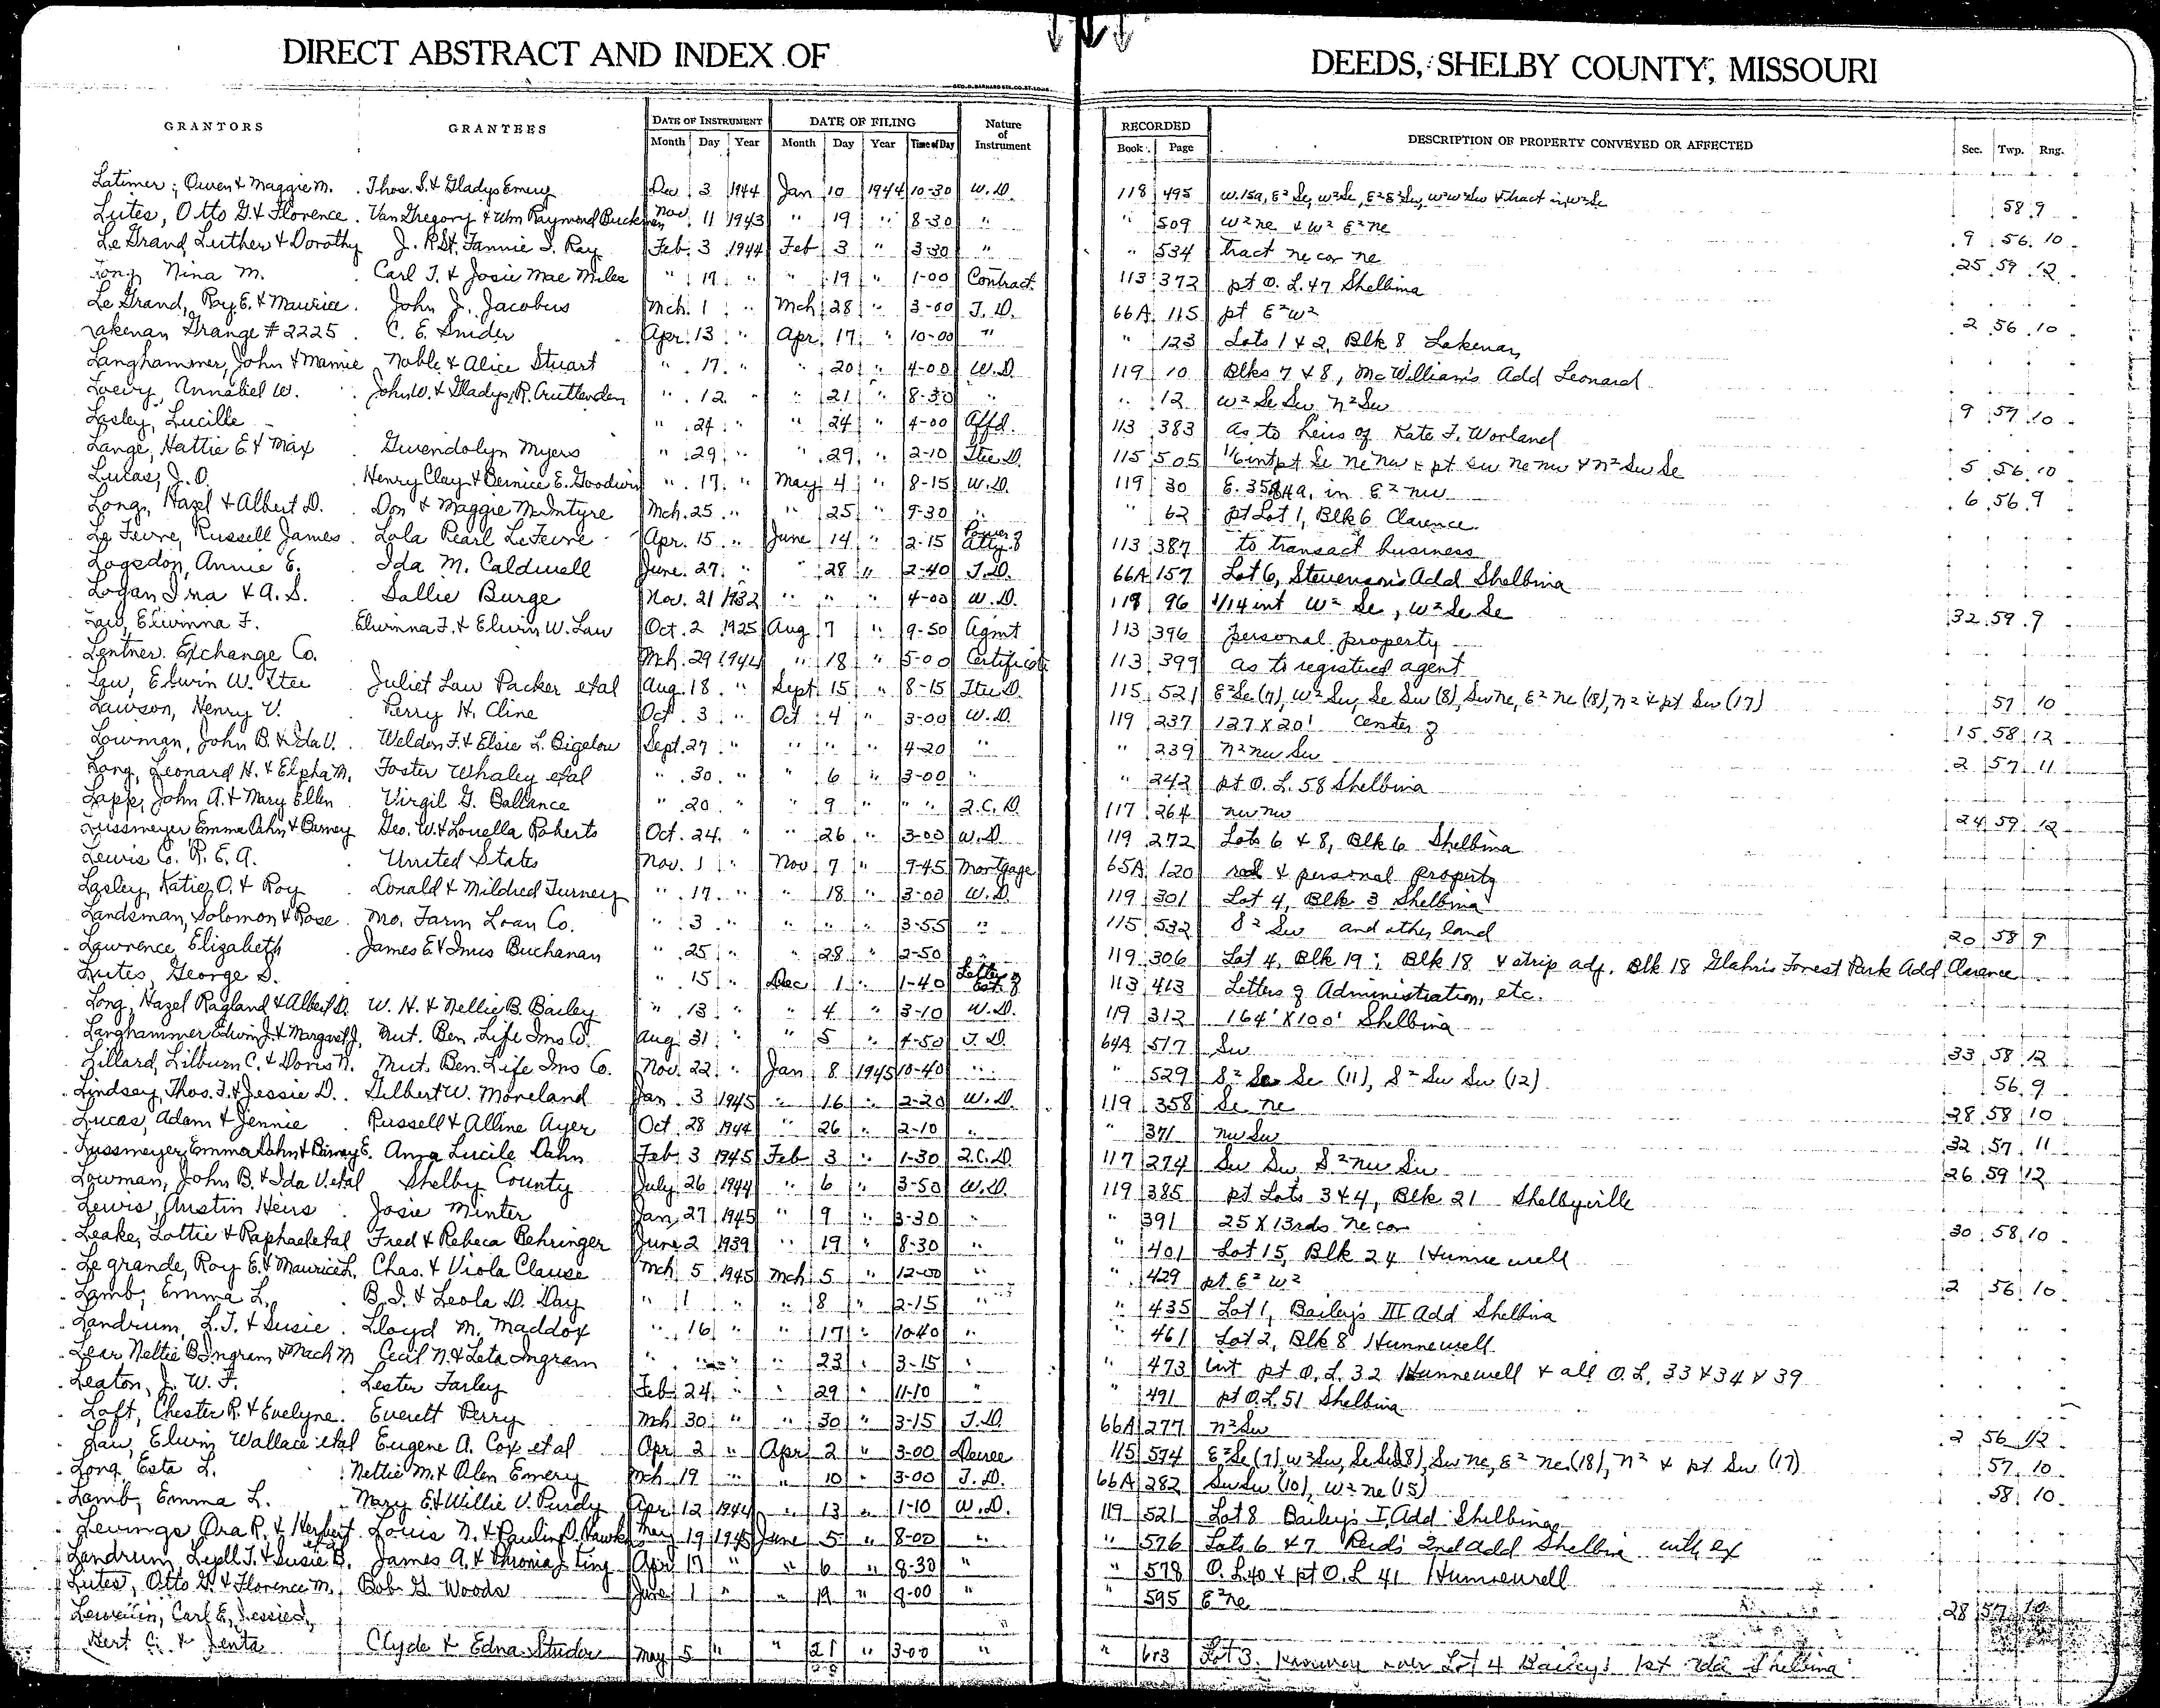 DIRECT ABSTRACT AND INDEX OF DEEDS, SHELBY COUNTY, MISSOURI
GRANTORS GRANTEES DATE OF INSTRUMENT DATE OF FILING Nature of Instrument RECORDED DESCRIPTION OF PROPERTY CONVEYED OR AFFECTED Sec. Twp. Rng.
Month Day Year Month Day Year Time of Day Book Page
Latimer, Owen & Maggie M. Thos. S. & Gladys Emery Dec 3 1944 Jan 10 1944 10-30 W.D. 118 495 W. 15a, E² Se, W² Se, E² E² Sw, W² W² Sw & tract in W² Se 58 9
Lutes, Otto G. & Florence Van Gregory & Wm Raymond Buckman Nov. 11 1943 " 19 " 8-30 " " 509 W² ne & W² E² ne 9 56 10
Le Grand, Luther & Dorothy J. R. & Fannie I. Ray Feb. 3 1944 Feb 3 " 3-30 " " 534 tract ne cor ne 25 59 12
Long Nina M. Carl T. & Josie Mae Miles " 19 " " 19 " 1-00 Contract 113 372 pt O. L. 47 Shelbina
Le Grand, Roy E. & Maurice John J. Jacobus Mch. 1 " Mch 28 " 3-00 T.D. 66A 115 pt E² W² 2 56 10
Lakenan Grange # 2225 C. E. Snider Apr. 13 " Apr. 17 " 10-00 " " 123 Lots 1 & 2, Blk 8 Lakenan
Langhammer, John & Mamie Noble & Alice Stuart " 17 " " 20 " 4-00 W.D. 119 10 Blks 7 & 8, McWilliam's Add Leonard
Loevy, Annabel W. John W. & Gladys R. Cruttenden " 12 " " 21 " 8-30 " " 12 W² Se Sw, N² Sw 9 57 10
Lasley, Lucille " 24 " " 24 " 4-00 Affd. 113 383 as to heirs of Kate F. Worland
Lange, Hattie E. & Max Gwendolyn Myers " 29 " " 29 " 2-10 Tree D. 115 505 1/6 int pt Se ne nw & pt Sw ne nw & n² Sw Se 5 56 10
Lucas, J. O. Henry Clay & Bernice E. Goodwin " 17 " May 4 " 8-15 W.D. 119 30 in E² nw 6 56 9
Long, Hazel & Albert D. Don & Maggie McIntyre Mch. 25 " " 25 " 9-30 " " 62 pt Lot 1, Blk 6 Clarence
Le Fevre, Russell James Lola Pearl LeFevre Apr. 15 " June 14 " 2-15 Power of Atty. 113 387 to transact business
Logsdon, Annie E. Ida M. Caldwell June 27 " " 28 " 2-40 T.D. 66A 157 Lot 6, Stevenson's Add Shelbina
Logan Ina & A. S. Sallie Burge Nov. 21 1932 " " " 4-00 W.D. 119 96 1/14 int W² Se, W² Se Se 32 59 9
Law, Elwinna F. Elwinna F. & Elwin W. Law Oct. 2 1925 Aug 7 " 9-50 Agmt 113 396 personal property
Lentner Exchange Co. Mch. 29 1944 " 18 " 5-00 Certificate 113 399 as to registered agent
Law, Elwin W. Ttee Juliet Law Packer etal Aug. 18 " Sept 15 " 8-15 Ttee D. 115 521 E² Se (7), W² Sw, Se Sw (8), Sw ne, E² ne (18), n² & pt Sw (17) 57 10
Lawson, Henry V. Perry H. Cline Oct. 3 " Oct 4 " 3-00 W.D. 119 237 127 X 20' Center of 15 58 12
Lowman, John B. & Ida V. Weldon F. & Elsie L. Bigelow Sept. 27 " " " " 4-20 " " 239 n² nw Sw 2 57 11
Long, Leonard H. & Elpha M. Foster Whaley etal " 30 " " 6 " 3-00 " " 242 pt O. L. 58 Shelbina
Lapp, John A. & Mary Ellen Virgil G. Ballance " 20 " " 9 " " " Q.C.D. 117 264 nw nw 24 59 12
Lussmeyer Emma Dahn & Barney Geo. W. & Louella Roberts Oct. 24 " " 26 " 3-00 W.D. 119 272 Lots 6 & 8, Blk 6 Shelbina
Lewis Co. R. E. A. United States Nov. 1 " Nov 7 " 9-45 Mortgage 65A 120 real & personal property
Lasley, Katie O. & Roy Donald & Mildred Turney " 17 " " 18 " 3-00 W.D. 119 301 Lot 4, Blk 3 Shelbina
Landsman, Solomon & Rose Mo. Farm Loan Co. " 3 " " " " 3-55 " 115 532 S² Sw and other land 20 58 9
Lawrence, Elizabeth James E. & Inus Buchanan " 25 " " 28 " 2-50 " 119 306 Lot 4, Blk 19; Blk 18 & strip adj. Blk 18 Glahn's Forest Park Add. Clarence
Lutes, George S. " 15 " Dec 1 " 1-40 113 413 Letters of Administration, etc.
Long, Hazel Ragland & Albert D. W. H. & Nellie B. Bailey " 13 " " 4 " 3-10 W.D. 119 312 164' X 100' Shelbina
Langhammer Edwin J. & Margaret J. Mut. Ben Life Ins Co. Aug. 31 " " 5 " 4-50 T.D. 64A 517 Sw 33 58 12
Lillard, Lilburn C. & Doris N. Mut. Ben. Life Ins Co. Nov. 22 " Jan 8 1945 10-40 " " 529 S² Se (11), S² Sw Sw (12) 56 9
Lindsey, Thos. F. & Jessie D. Gilbert W. Moreland Jan. 3 1945 " 16 " 2-20 W.D. 119 358 Se ne 28 58 10
Lucas, Adam & Jennie Russell & Alline Ayer Oct. 28 1944 " 26 " 2-10 " " 371 nw Sw 32 57 11
Lussmeyer, Emma Dahn & Barney E. Anna Lucile Dahn Feb. 3 1945 Feb 3 " 1-30 Q.C.D. 117 274 Sw Sw S² nw Sw 26 59 12
Lowman, John B. & Ida V. etal Shelby County July 26 1944 " 6 " 3-50 W.D. 119 385 pt Lots 3 & 4, Blk 21 Shelbyville
Lewis, Austin Heirs Josie Minter Jan. 27 1945 " 9 " 3-30 " " 391 25 X 13 rds ne cor 30 58 10
Leake, Lottie & Raphael etal Fred & Rebeca Behringer June 2 1939 " 19 " 8-30 " " 401 Lot 15, Blk 24 Hunnewell
Le grande, Roy E. & Maurice L. Chas. & Viola Clause Mch 5 1945 Mch 5 " 12-00 " " 429 pt E² W² 2 56 10
Lamb, Emma L. B. I. & Leola D. Day " 1 " " 8 " 2-15 " " 435 Lot 1, Bailey's III Add Shelbina
Landrum, L. T. & Susie Lloyd M. Maddox " 16 " " 17 " 10-40 " " 461 Lot 2, Blk 8 Hunnewell
Lear Nettie B Ingram & Mach M Cecil N. & Leta Ingram " " " " 23 " 3-15 " " 473 int pt O. L. 32 Hunnewell & all O. L. 33 & 34 & 39
Leaton, J. W. F. Lester Farley Feb. 24 " " 29 " 11-10 " " 491 pt O.L. 51 Shelbina
Loft, Chester R. & Evelyne Everett Perry Mch 30 " " 30 " 3-15 T.D. 66A 277 n² Sw 2 56 12
Law, Elwin Wallace etal Eugene A. Cox et al Apr. 2 " Apr. 2 " 3-00 Decree 115 574 E² Se (7) W² Sw, Se Sw (8), Sw ne, E² ne (18), n² & pt Sw (17) 57 10
Long, Esta L. Nettie M. & Olen Emery Mch 19 " " 10 " 3-00 T.D. 66A 282 Sw Sw (10), W² ne (15) 58 10
Lamb, Emma L. Mary E. & Willie V. Purdy Apr. 12 1944 " 13 " 1-10 W.D. 119 521 Lot 8 Bailey's I Add Shelbina
Levings Ora R. & Herbert Louis N. & Pauline D. Hawkins May 19 1945 June 5 " 8-00 " " 576 Lots 6 & 7 Reid's 2nd Add Shelbina with ex
Landrum, Lyell T. & Susie B. James A. & Ting Apr 17 " " 6 " 8-30 " " 578 O. L. 40 & pt O. L 41 Hunnewell
Lutes, Otto G. & Florence M. Bob G. Woods June 1 " " 19 " 9-00 " " 595 E² ne 28 57 10
Lewellin, Carl E., Jessie,
Bert C. & Jenta Clyde & Edna Studer May 5 " " 21 " 3-00 " " 613 Lot 3 over Lot 4 Bailey's 1st Add Shelbina